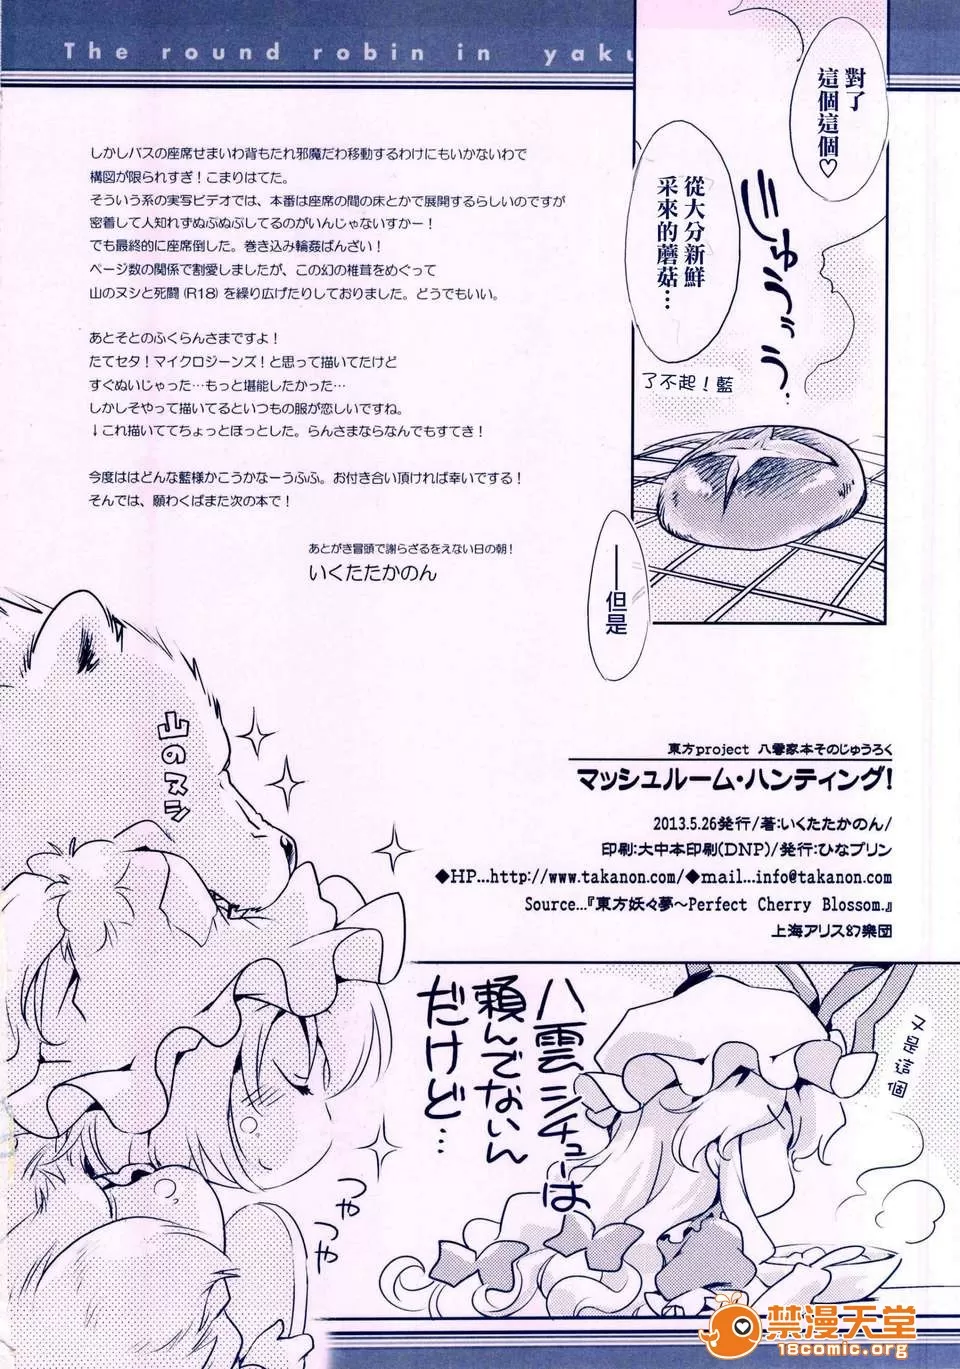 The round robin in yaku
對了
這個這個♡
從大分新鮮
采來的蘑菇…
じゅううっ…
了不起！藍
——但是
しかしバスの座席せまいわ背もたれ邪魔だわ移動するわけにもいかないわで
構図が限られすぎ！こまりはてた。
そういう系の実写ビデオでは、本番は座席の間の床とかで展開するらしいのですが
密着して人知れずぬぷぬぷしてるのがいんじゃないすかー！
でも最終的に座席倒した。巻き込み輪姦ばんざい！
ページ数の関係で割愛しましたが、この幻の椎茸をめぐって
山のヌシと死闘（R18）を繰り広げたりしておりました。どうでもいい。
あとそとのふくらんさまですよ！
たてセタ！マイクロジーンズ！と思って描いてたけど
すぐぬいじゃった…もっと堪能したかった…
しかしそやって描いてるといつもの服が恋しいですね。
↓これ描いててちょっとほっとした。らんさまならなんでもすてき！
今度ははどんな藍様かこうかなーうふふ。お付き合い頂ければ幸いでする！
そんでは、願わくばまた次の本で！
あとがき冒頭で謝らざるをえない日の朝！
いくたたかのん
山のヌシ
東方project 八雲家本そのじゅうろく
マッシュルーム・ハンティング！
2013.5.26発行/著:いくたたかのん/
印刷:大中本印刷(DNP)/発行:ひなプリン
◆HP...http://www.takanon.com/◆mail...info@takanon.com
Source...『東方妖々夢～Perfect Cherry Blossom.』
上海アリス幻樂団
八雲シチューは
頼んでないん
だけど…
又是這個
つや
つや
禁漫天堂
18comic.org